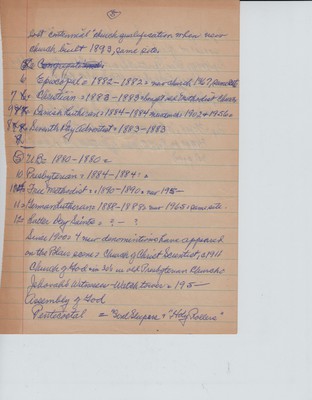 lost "centennial" church qualification when new
church built 1893, same site.
6. Episcopal = 1882-1882 = new church 1967, same
7. Christian = 1883-1883 = bought old Methodist Church
Danish Lutheran = 1884-1884 moved 1902 + 1956 =
Seventh Day Adventist = 1883-1883
U.B. 1880-1880 =
Presbyterian = 1884-1884 =
Free Methodist = 1890-1890 = new 195-
11. German Lutherans 1888-1888, new 1965, same site.
12. Latter Day Saints = ? - ?
Since 1900 = 4 new denominations have appeared
on the Blair scene = Church of Christ Scientist, 1911
Church of God = in 30's in old Presbyterian Church.
Jehovah's Witnesses - Watch tower = 195-
Assembly of God
Pentecostal = "Foursquare" + "Holy Rollers"